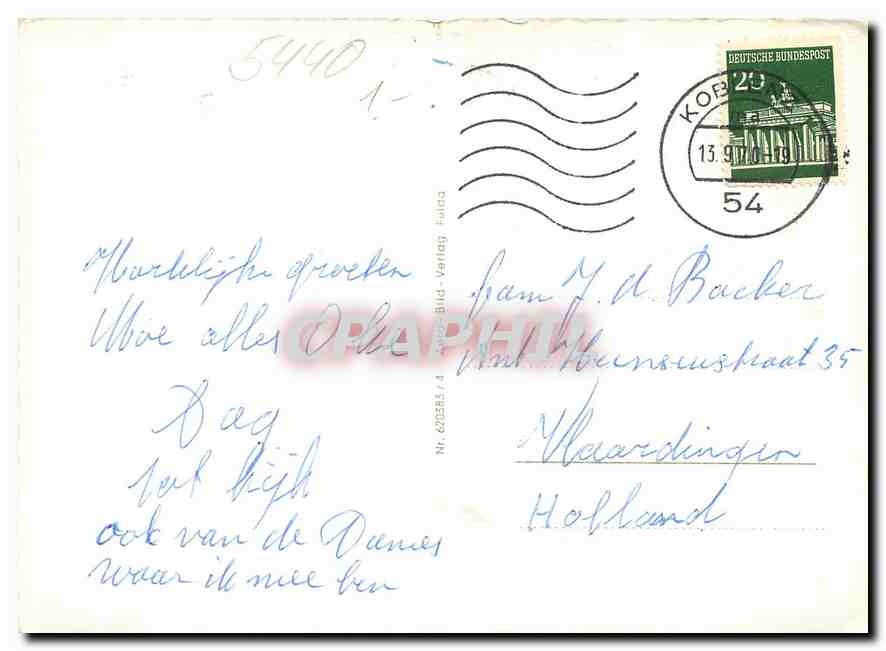 5440
1.-
DEUTSCHE BUNDESPOST
20
KOBLENZ
13.9.70-19
54
Hartelijke groeten
Moe alles O ke
Dag
tot kijk
ook van de Dames
waar ik mee ben
Nr. 620383/4 Bild-Verlag Fulda
CPAPHIL
fam J. d. Backer
35
Vlaardingen
Holland